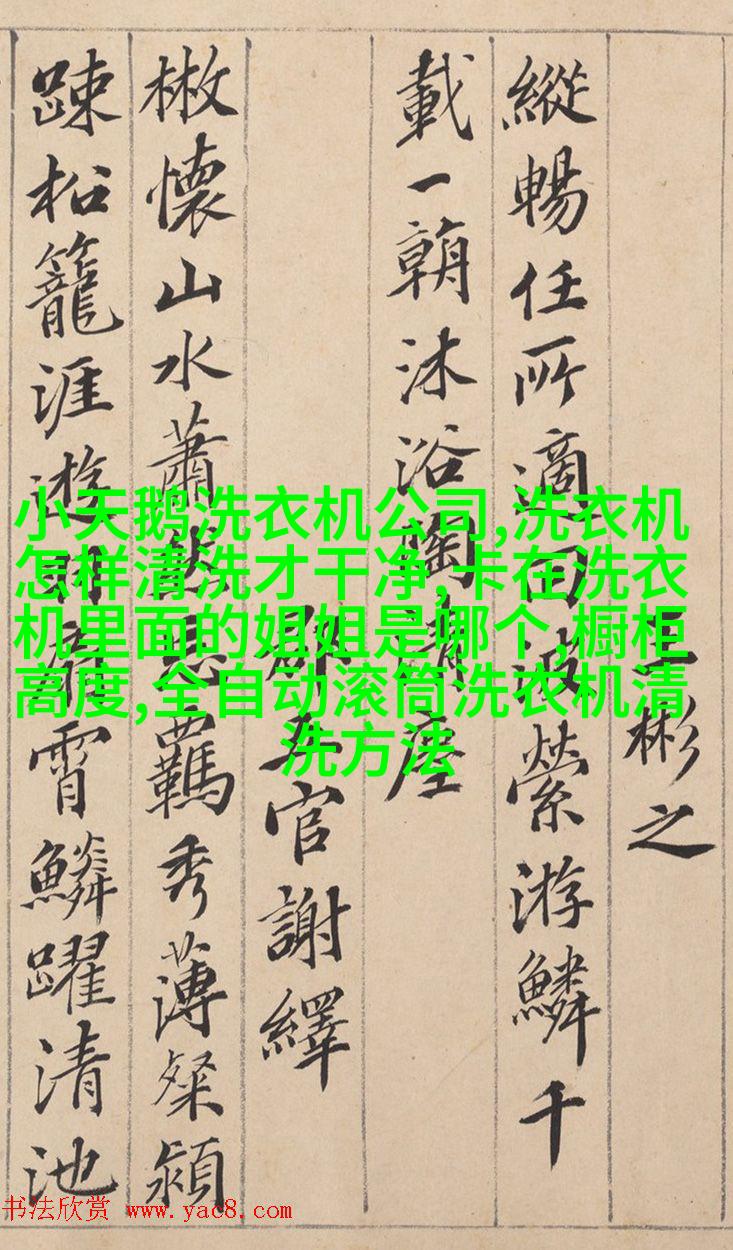 王彬之
縱暢任所適回波縈游鱗千
載一朝沐浴陶清塵
郡五官謝繹
散懷山水蕭然忘羈秀薄粲穎
踈松籠涯遊羽扇霄鱗躍清池
小天鹅洗衣机公司,洗衣机
怎样清洗才干净,卡在洗衣
机里面的姐姐是哪个,橱柜
高度,全自动滚筒洗衣机清
洗方法
书法欣赏 www.yac8.com